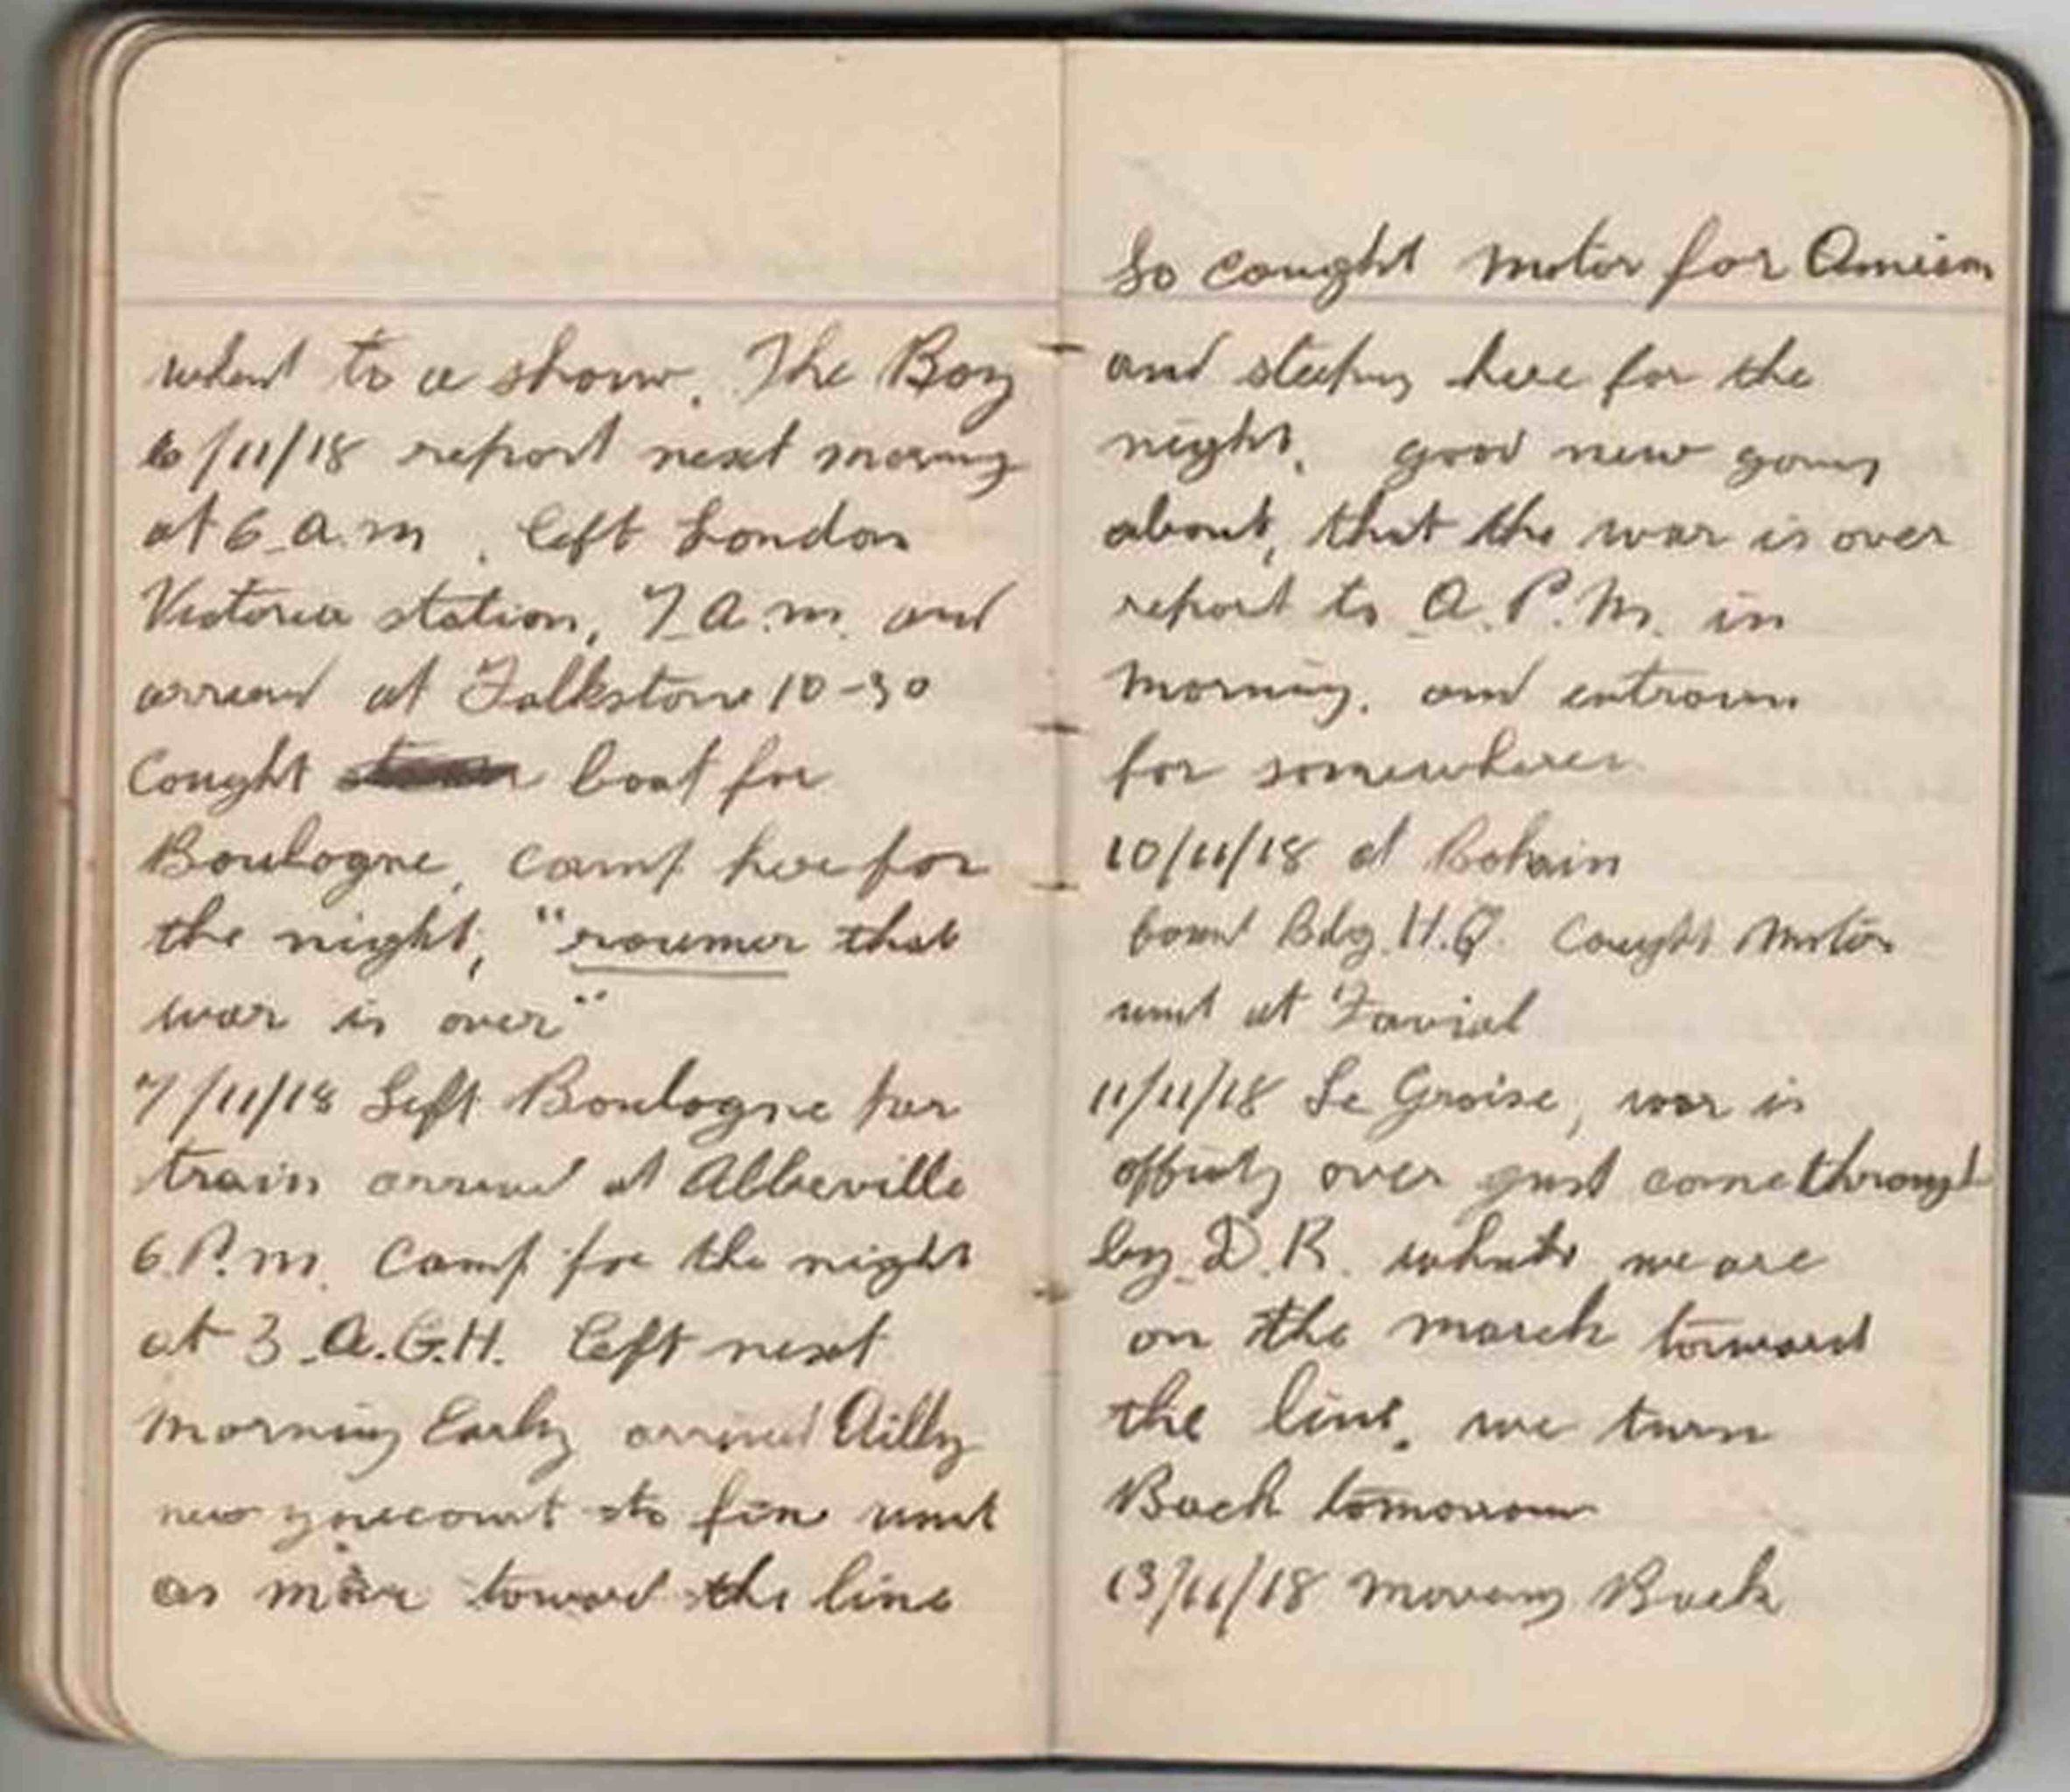 whent to a show. The Boy
6/11/18 report next morning
at 6 a.m. left London
Victoria station, 7 a.m. and
arrived at Falkstone 10-30
Cought boat for
Boulogne, camp here for
the night, "roumer that
war is over"
7/11/18 Left Boulogne per
train arrived at Abbeville
6 P.m. Camp for the night
at 3 A.G.H. left next
morning Early arrived Ailly
new to fine unit
as move toward the line
So cought motor for Amien
and sleeping here for the
night. good new going
about, that the war is over
report to A.P.M. in
morning. and entrain
for somewhere
10/11/18 at Bohain
found Bdg. H.Q. Cought Motor
unit at Favial
11/11/18 Le Groise, war is
over just come through
by D.R. we are
on the march toward
the line. we turn
Back tomorrow
13/11/18 moveing Back